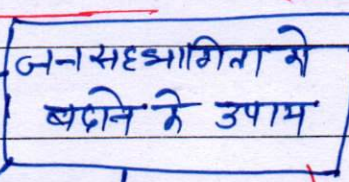 जन सहभागिता को
बढाने के उपाय